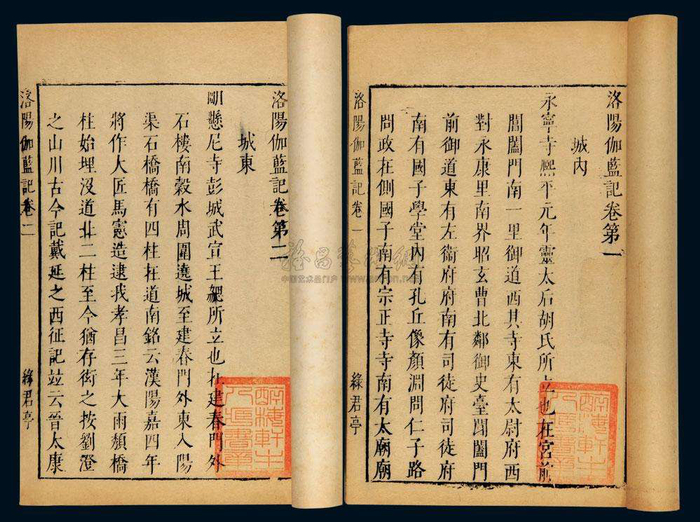 洛陽伽藍記卷第一
城内
永寧寺熙平元年靈太后胡氏所立也在宮前
閶闔門南一里御道西其寺東有太尉府西
對永康里南界昭玄曹北鄰御史臺閶闔門
前御道東有左衞府府南有司徒府司徒府
南有國子學堂内有孔丘像顏淵問仁子路
問政在側國子南有宗正寺寺南有太廟廟
洛陽伽藍記 卷一 綠君亭
洛陽伽藍記卷第二
城東
明懸尼寺彭城武宣王勰所立也在建春門外
石樓南穀水周圍遶城至建春門外東入陽
渠石橋橋有四柱在道南銘云漢陽嘉四年
將作大匠馬憲造逮我孝昌三年大雨頹橋
柱始埋沒道北二柱至今猶存衒之按劉澄
之山川古今記戴延之西征記竝云晉太康
洛陽伽藍記 卷二 綠君亭